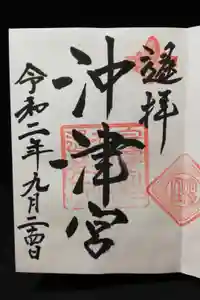 遥拝
沖津宮
令和二年九月二四日